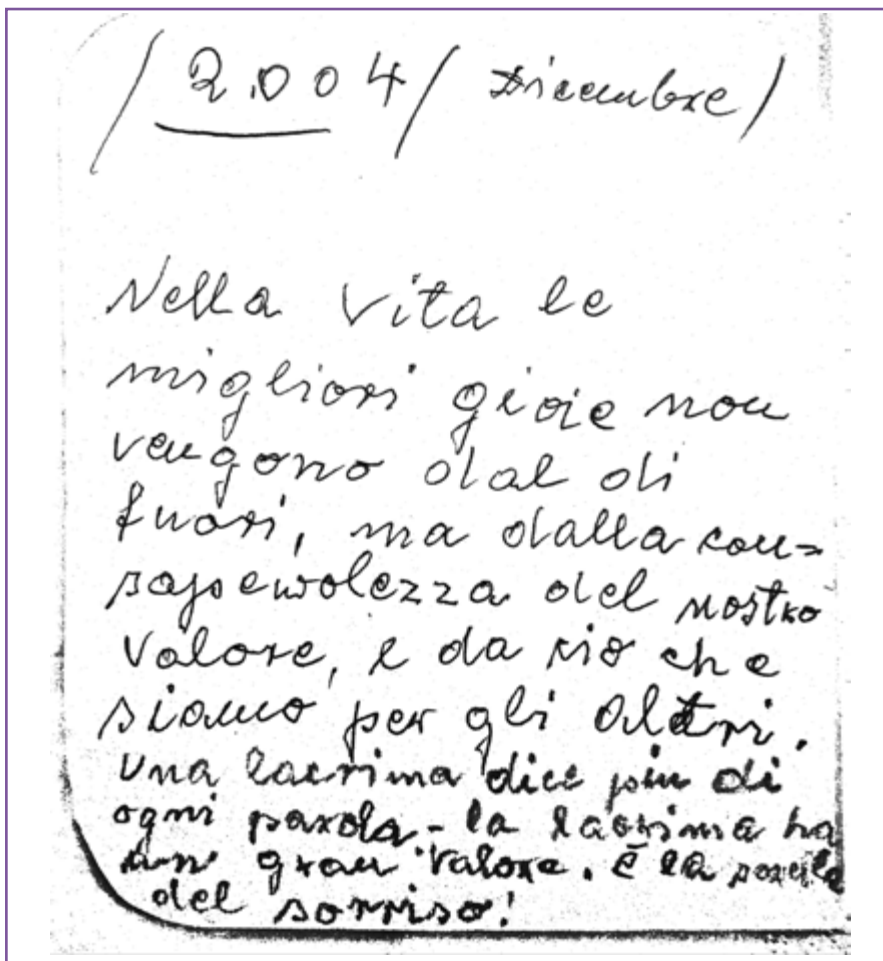 / 2.004 / Dicembre /
Nella Vita le
migliori gioie non
vengono dal di
fuori, ma dalla con=
sapevolezza del nostro
Valore, e da ciò che
siamo per gli altri.
Una lacrima dice più di
ogni parola - la lacrima ha
un gran Valore. È la sorella
del sorriso!